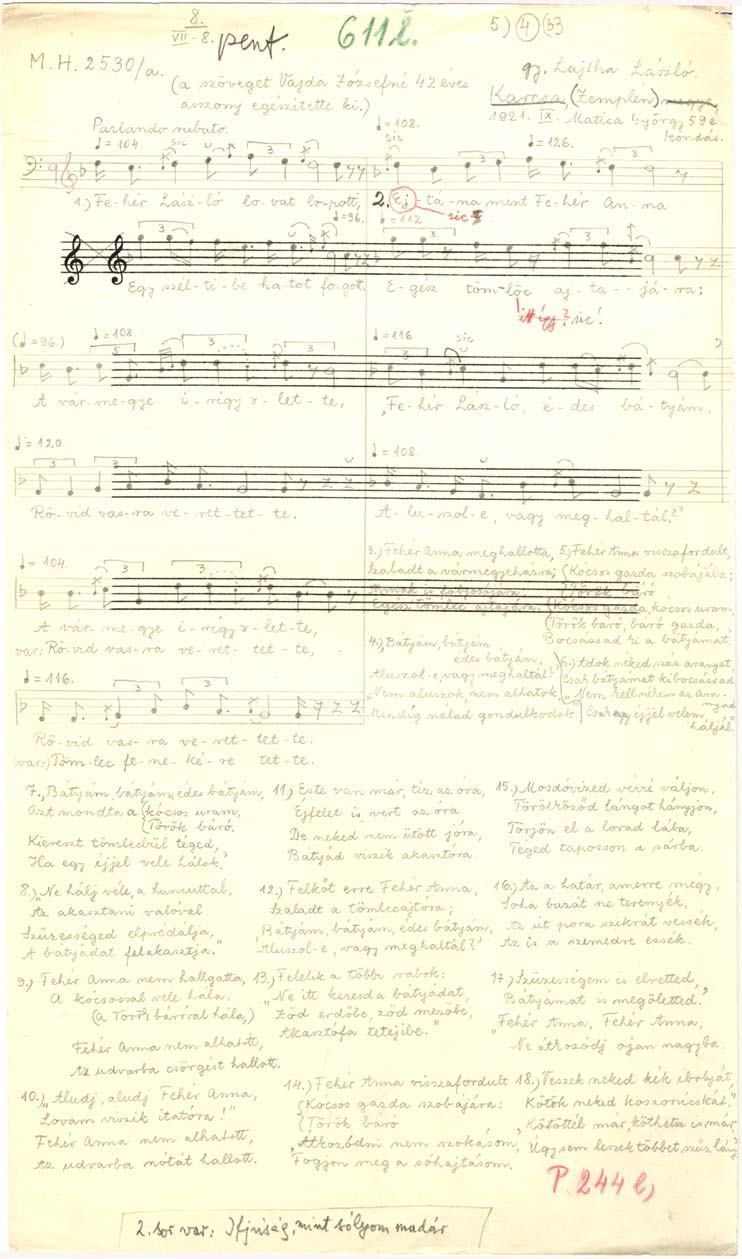 8.
VII-8.
pent.
611 l.
5) 4 b3
M.H. 2530/a.
(a szöveget Vajda Józsefné 42 éves
asszony egészítette ki.)
gy. Lajtha László.
Karcsa, (Zemplén) megye,
1921. IX. Matica György 59 é.
kondás.
Parlando rubato.
♩=104.
sic
♩=108.
sic
♩=126.
1.) Fe-hér Lász-ló lo-vat lo-pott,
2. Ej-tá-na ment Fe-hér An-na
sic
♩=96.
♩=112
Egy szél-ti-be ha-tot fo-got.
E-gész töm-löc aj-ta--já-ra;
! sic!
(♩=96.) ♩=108.
♩=116 sic
A vár-me-gye i-rigy s-let-te,
„Fe-hér Lász-ló, é-des bá-tyám,
♩=120.
♩=108.
Rö-vid vas-ra ve-ret-tet-te.
A-lu-szol-e, vagy meg-hal-tál?"
♩=104.
A vár-me-gye i-rigy s-let-te,
var: Rö-vid vas-ra ve-ret-tet-te,
♩=116.
Rö-vid vas-ra ve-ret-tet-te.
(var:) Töm-lec fe-ne-ké-re tet-te.
3.) Fehér Anna meghallotta,
Szaladt a vármegyeházra;
Annak is
Egész tömlec ajtajára.
4.) Bátyám, bátyám
édes bátyám,
Aluszol-e, vagy meghaltál?
„Nem aluszok, nem alhatok
Mindíg nálad gondulkodok
5.) Fehér Anna visszafordult,
(Kócsos gazda szobájába;
(Török báró
(Kócsos gazda, kócsos uram,
(Török báró, báró gazda,
Bocsássad ki a bátyámat.
6.) Adok néked száz aranyat,
Csak bátyámat kibocsássad
„Nem kell nékem az ara-
nyad
Csak egy éjjel velem
háljál."
7. „Bátyám, bátyám, édes bátyám,
Azt mondta a (kócsos uram,
(Török báró.
Kiereszt tömlecbül téged,
Ha egy éjjel vele hálok."
8.) „Ne hálj véle, a huncuttal,
Az akasztani valóval
Szüzességed elprédálja,
A bátyádat felakasztja."
9.) Fehér Anna nem hallgatta,
A kócsossal vele hála.
(a Török báróval hála,)
Fehér Anna nem alhatott,
Az udvarba csörgést hallott.
10.) „Aludj, aludj Fehér Anna,
Lovam viszik itatóra!"
Fehér Anna nem alhatott,
Az udvarba nótát hallott.
11.) Este van már, téz az óra,
Éjfelet is vert az óra
De neked nem ütött jóra,
Bátyád viszik akasztóra.
12.) Felköt erre Fehér Anna,
Szaladt a tömlecajtóra;
„Bátyám, bátyám, édes bátyám,
Aluszol-e, vagy meghaltál?"
13.) Felelik a többi rabok:
„Ne itt keresd a bátyádat,
Zöd erdőbe, zöd mezőbe,
Akasztófa tetejibe."
14.) Fehér Anna visszafordult
(Kócsos gazda szobájára:
(Török báró
„Átkozódni nem szokásom,
Fogjon meg a sóhajtásom.
15.) Mosdóvized vérré váljon,
Törölköződ lángot hányjon,
Törjön el a lovad lába,
Téged taposson a sárba.
16.) Az a határ, amerre mégy,
Soha buzát ne teremjék,
Az út pora szikrát vessék,
Az is a szemedre essék.
17.) Szüzességem is elvetted,
Bátyámat is megöletted."
„Fehér Anna, Fehér Anna,
Ne átkozódj ojan nagyba.
18.) Veszek neked kék ibolyát,
Kötök neked koszorúcskát."
„Kötöttél már, köthetsz is már,
Úgysem leszek többet szűz lány."
P. 244 l)
2. sor var: Ifjuság, mint sólyom madár